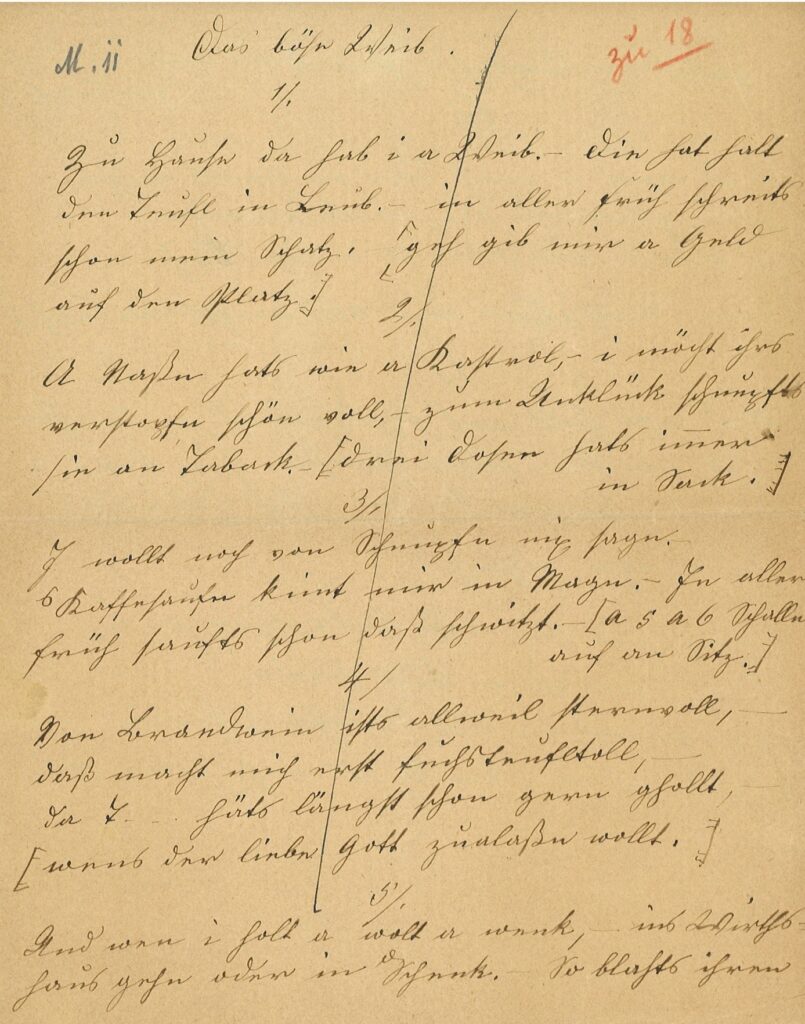 M. ii
Das böse Weib.
zu 18
1/.
Zu Hause da hab i a Weib. – Die hat halt
den Teufl in Leub. – in aller früh schreits
schon mein Schatz. [geh gib mir a Geld
auf den Platz.]
2/.
A Naßn hats wie a Kastrol, – i möcht ihrs
verstopfn schön voll, – zum Unklück schnupfts
sie an Taback. – [drei Dosen hats immer
in Sack.]
3/.
I wollt noch von Schnupfn nix sagn. –
s Kaffesaufn kimt mir in Magn. – In aller
früh saufts schon daß schwitzt. – [a 5 a 6 Schalln
auf an Sitz.]
4/
Von Brandwein ists allweil sternvoll, –
daß macht mich erst fuchsteufltoll, –
da T... häts längst schon gern ghollt, –
[wens der liebe Gott zualaßn wollt.]
5/.
And wen i holt a wolt a wenk, – ins Wirths-
haus gehn oder in d Schenk. – So blahts ihren